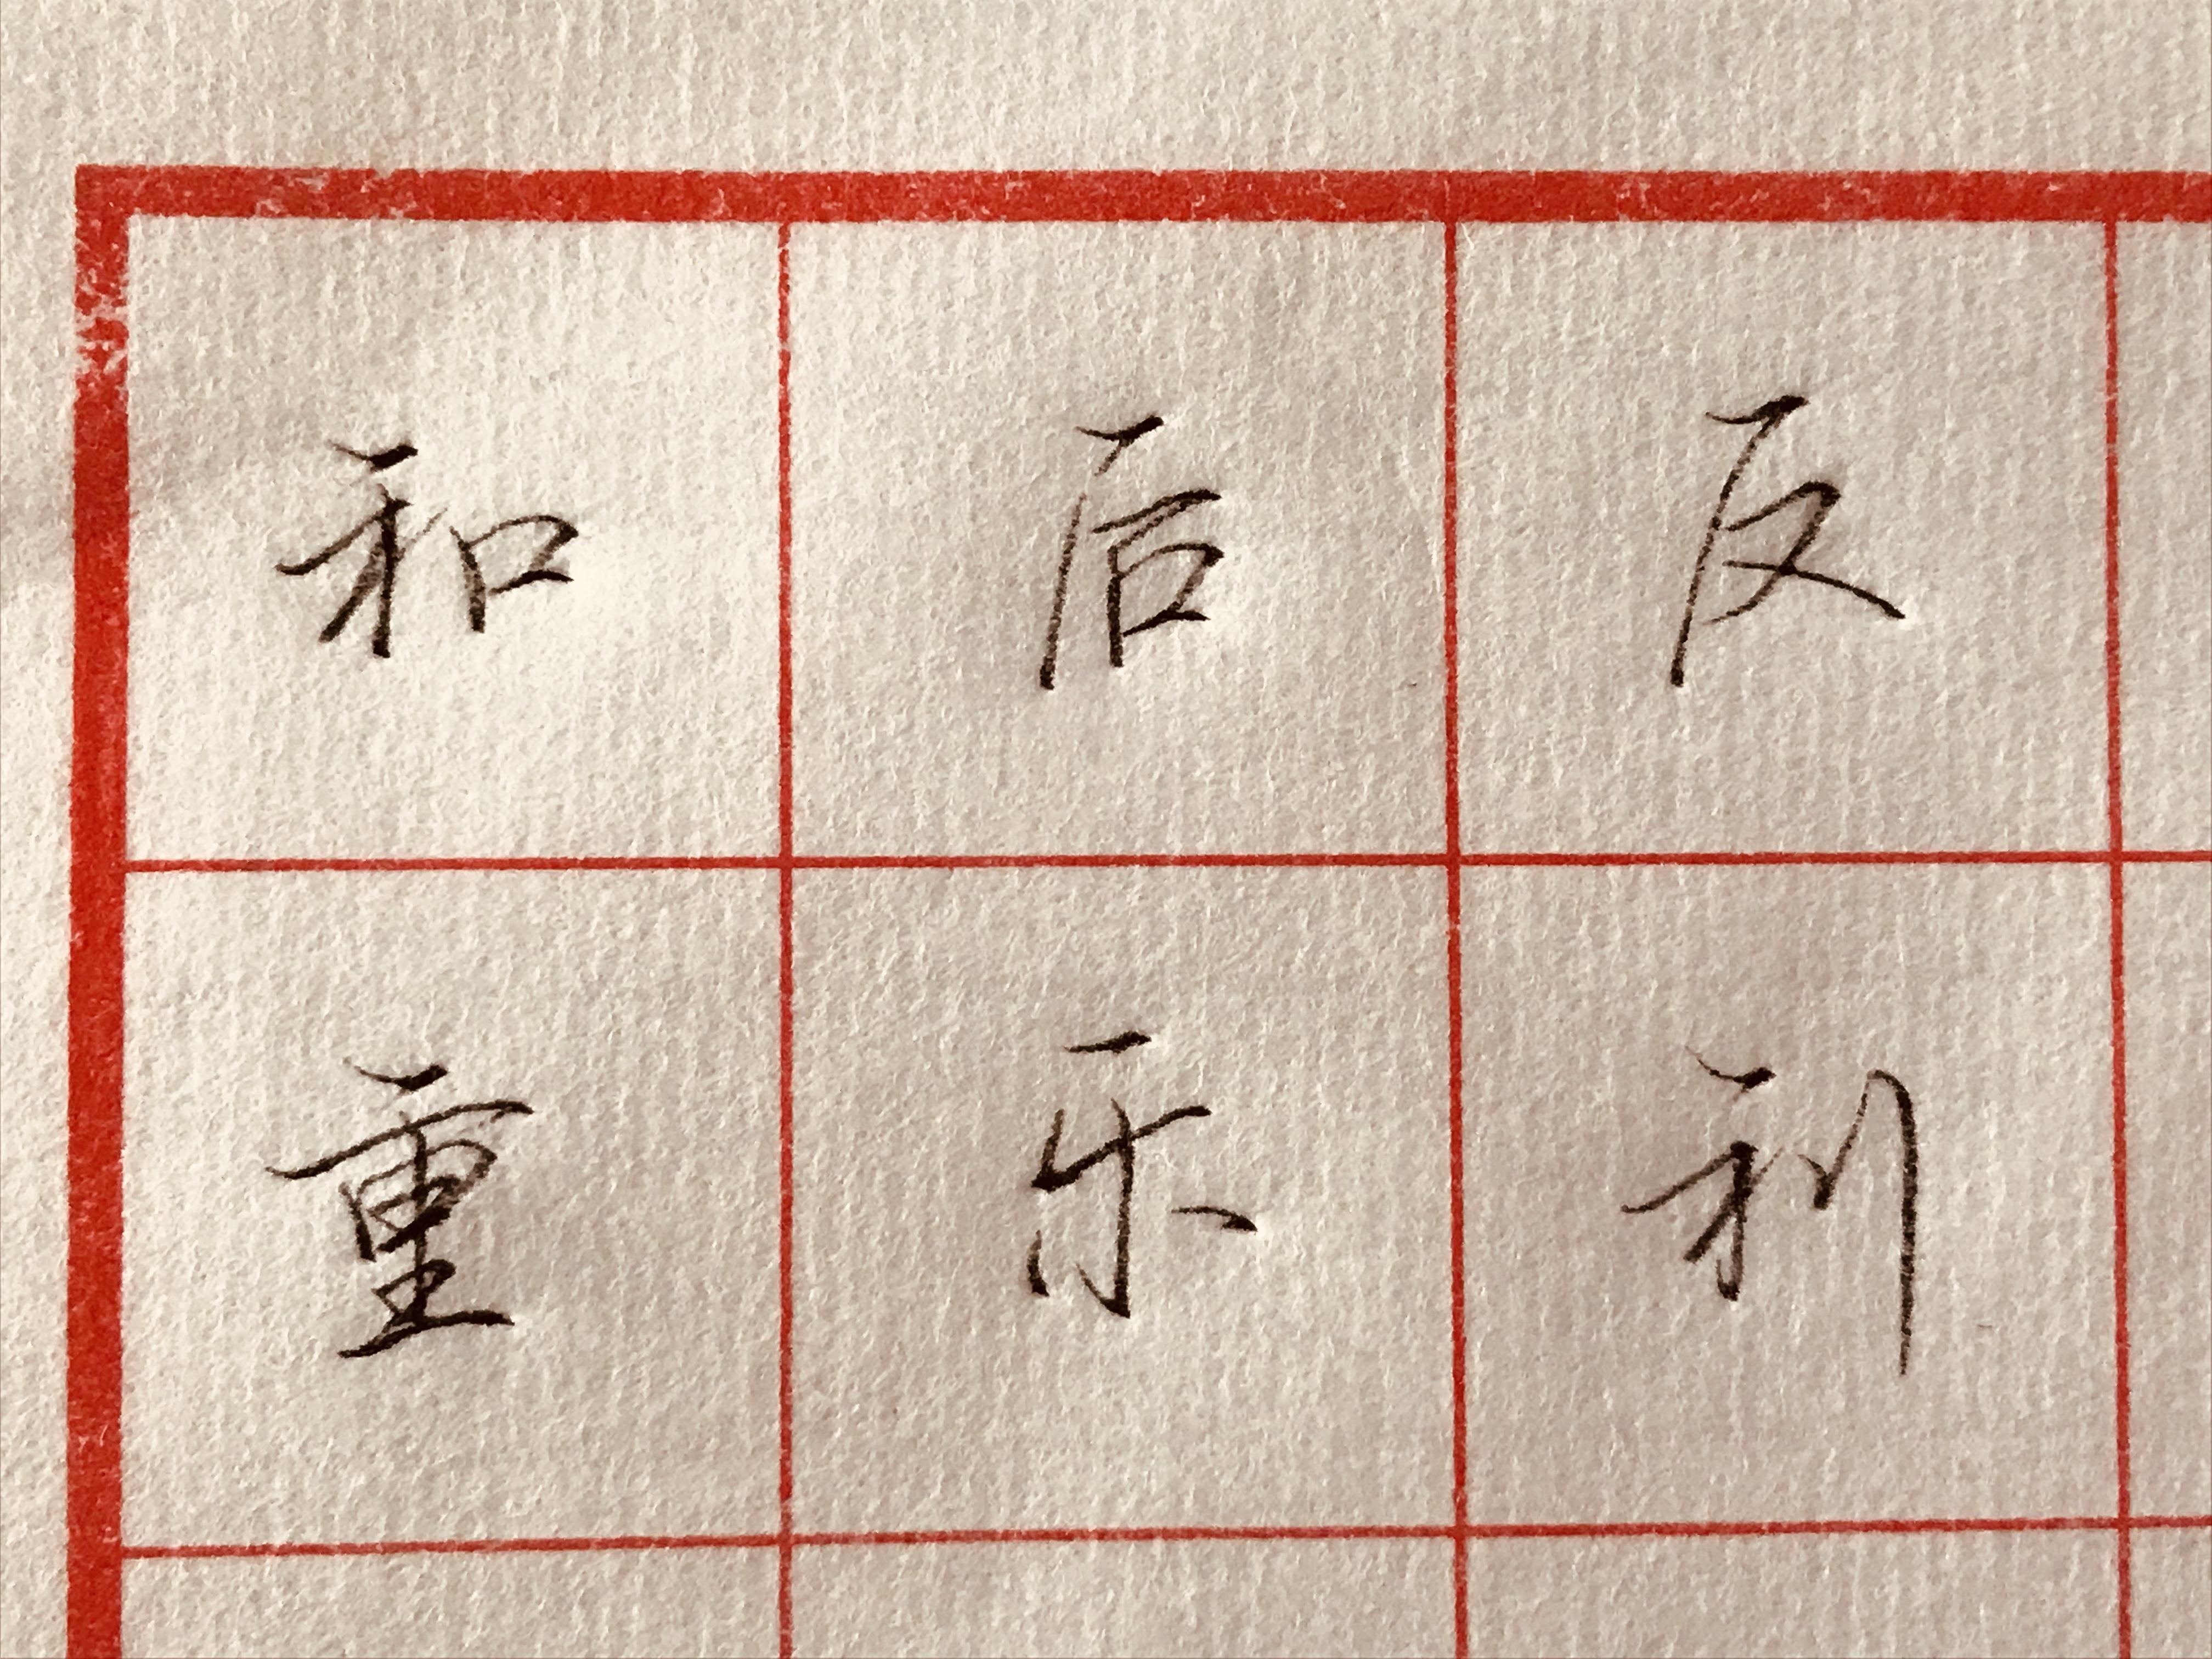 和后反
重乐利